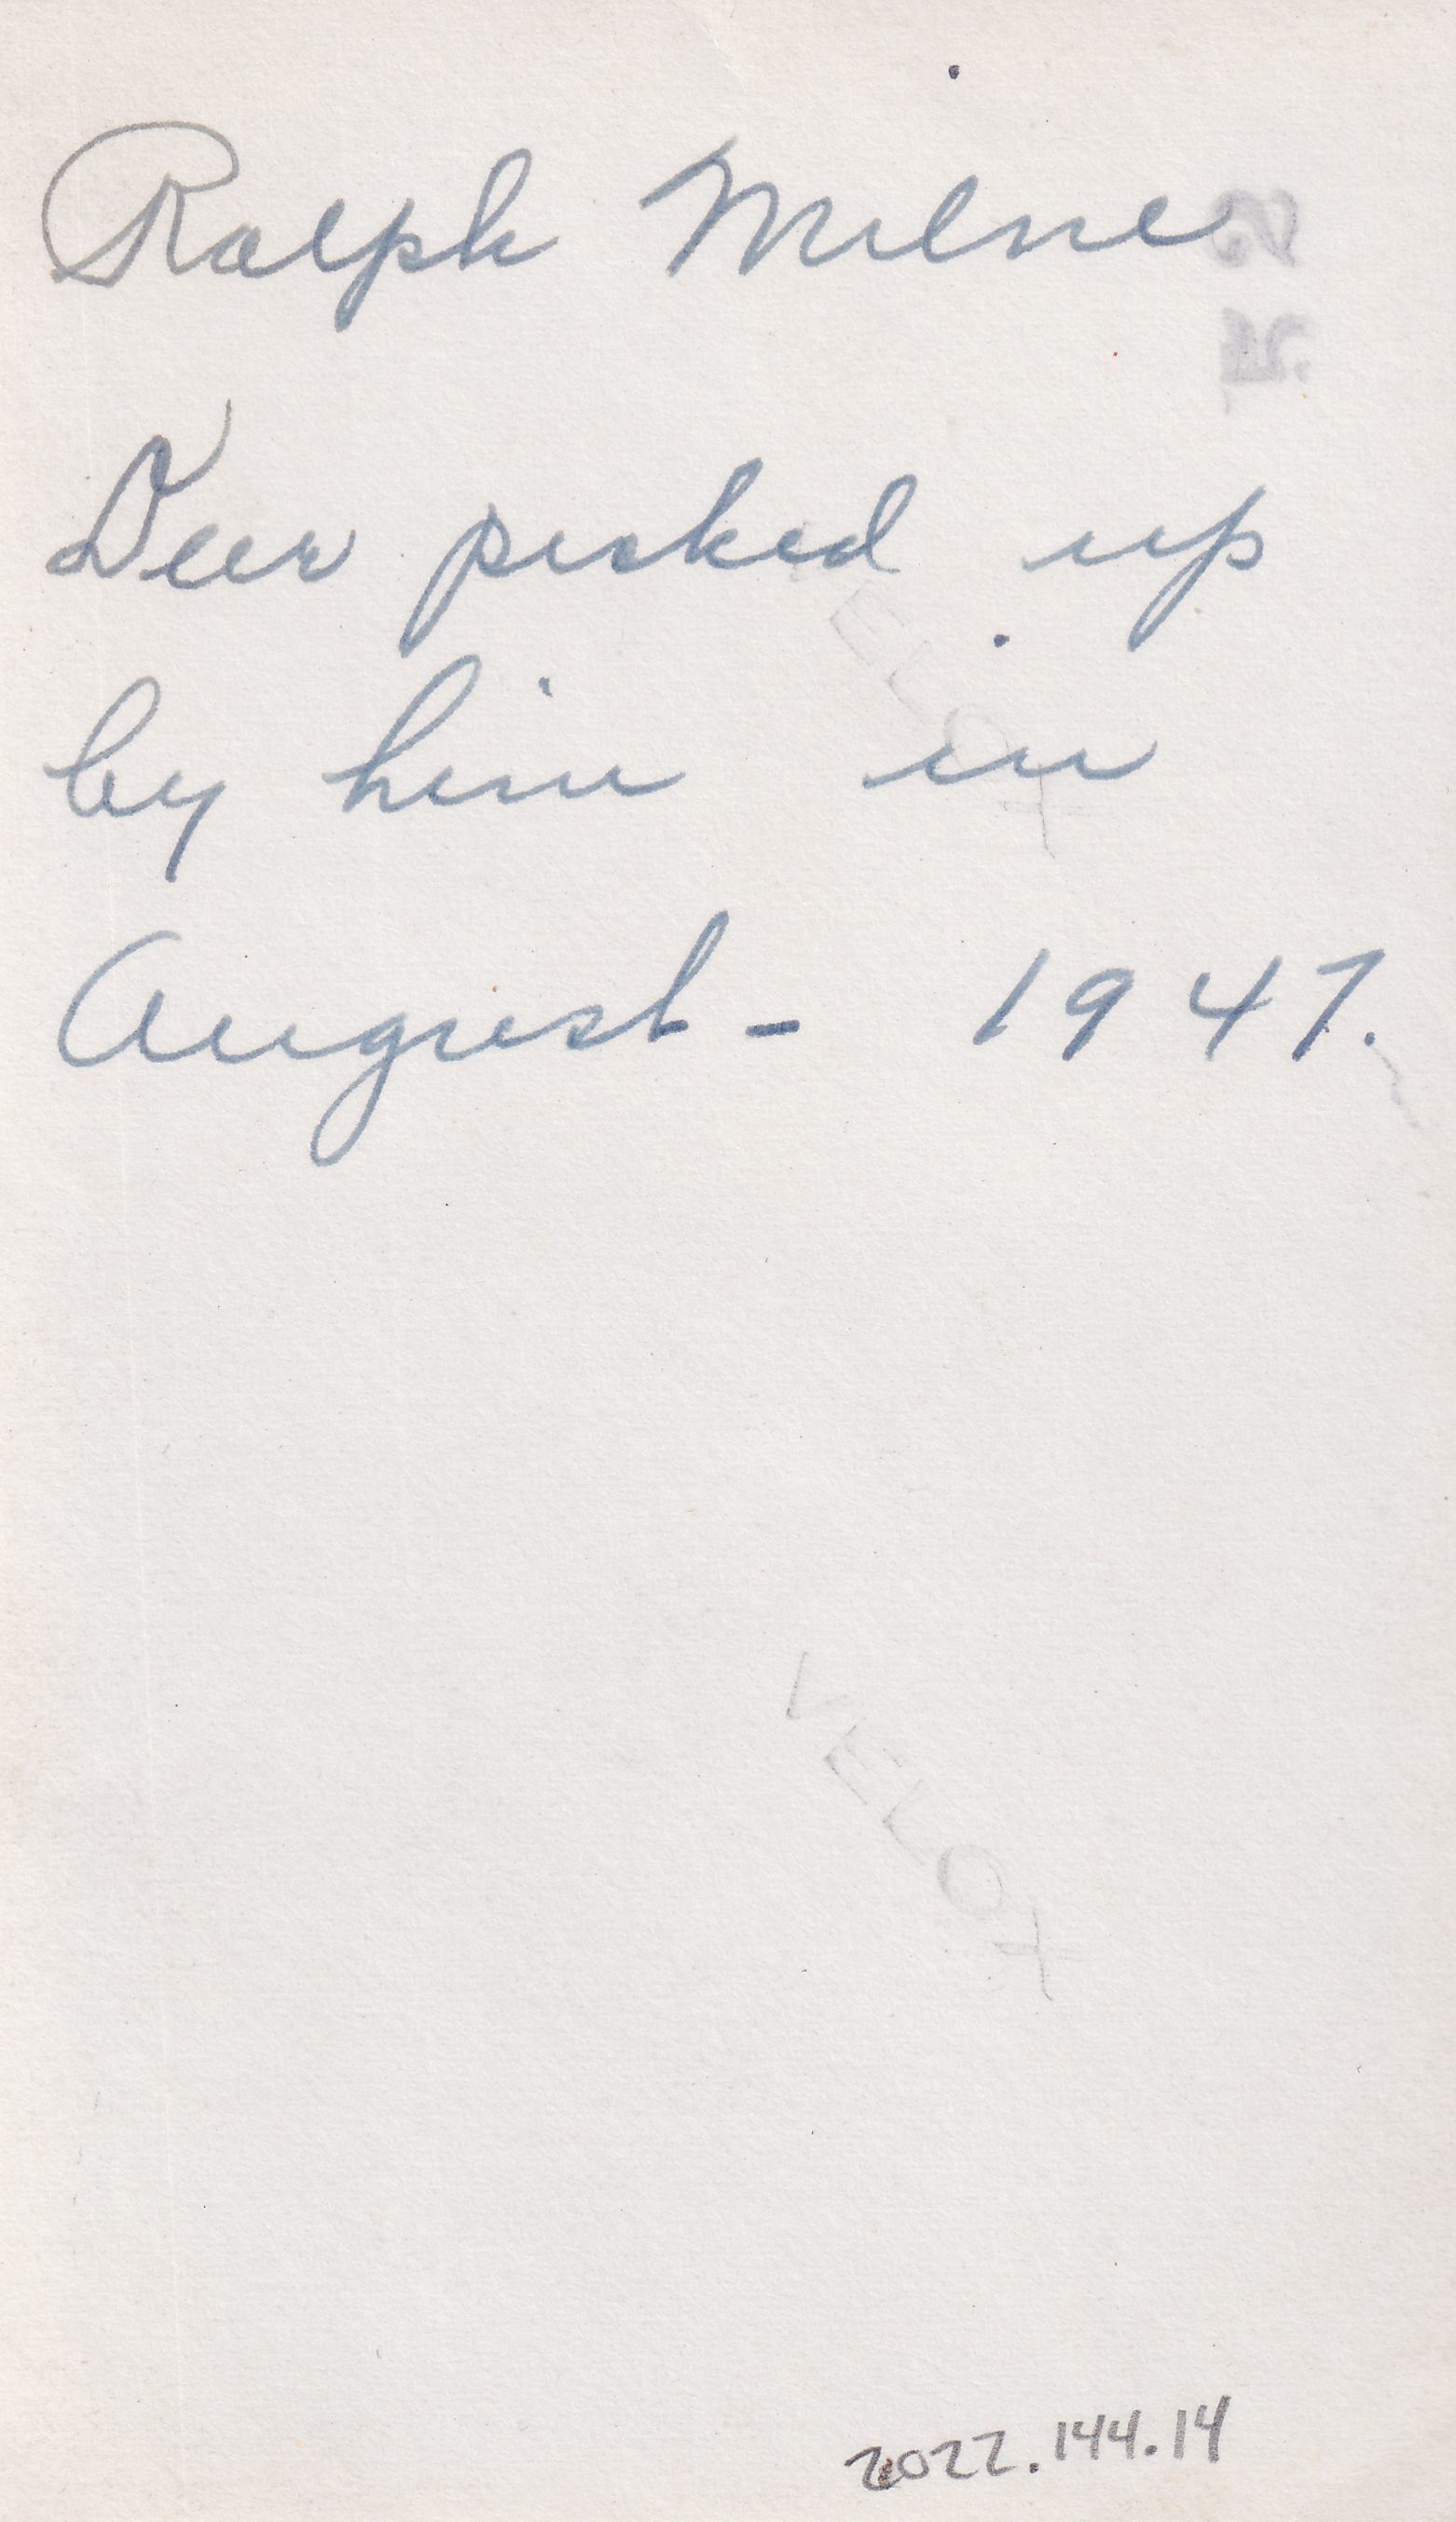 Ralph Milne
Deer picked up
by him in
August - 1947.
VELOX
VELOX
2022.144.14